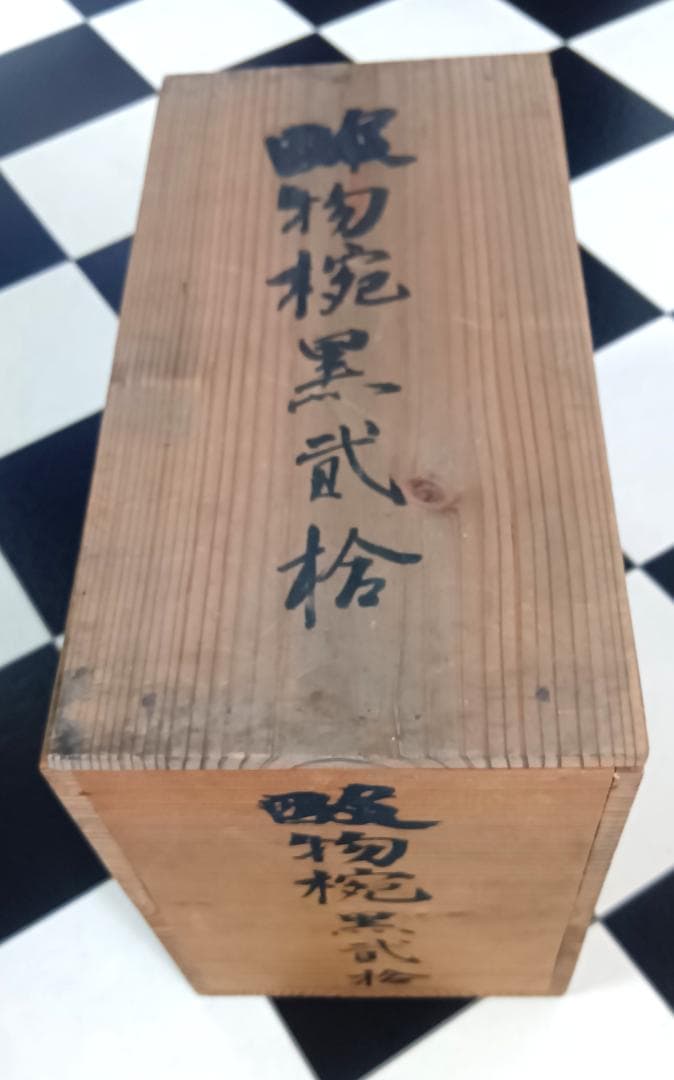 吸物椀黒貳拾
吸物椀黒貳拾